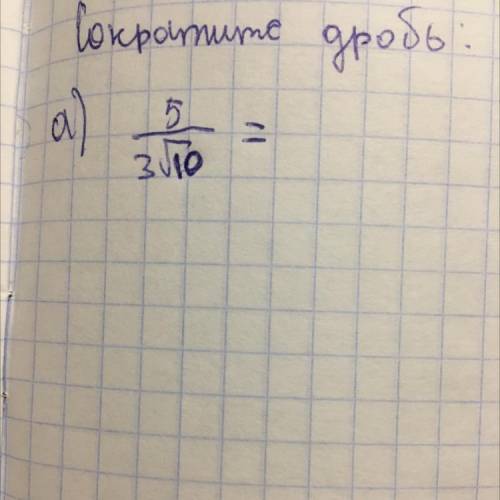 Сократите дробь:
а) 5/(3√10) =